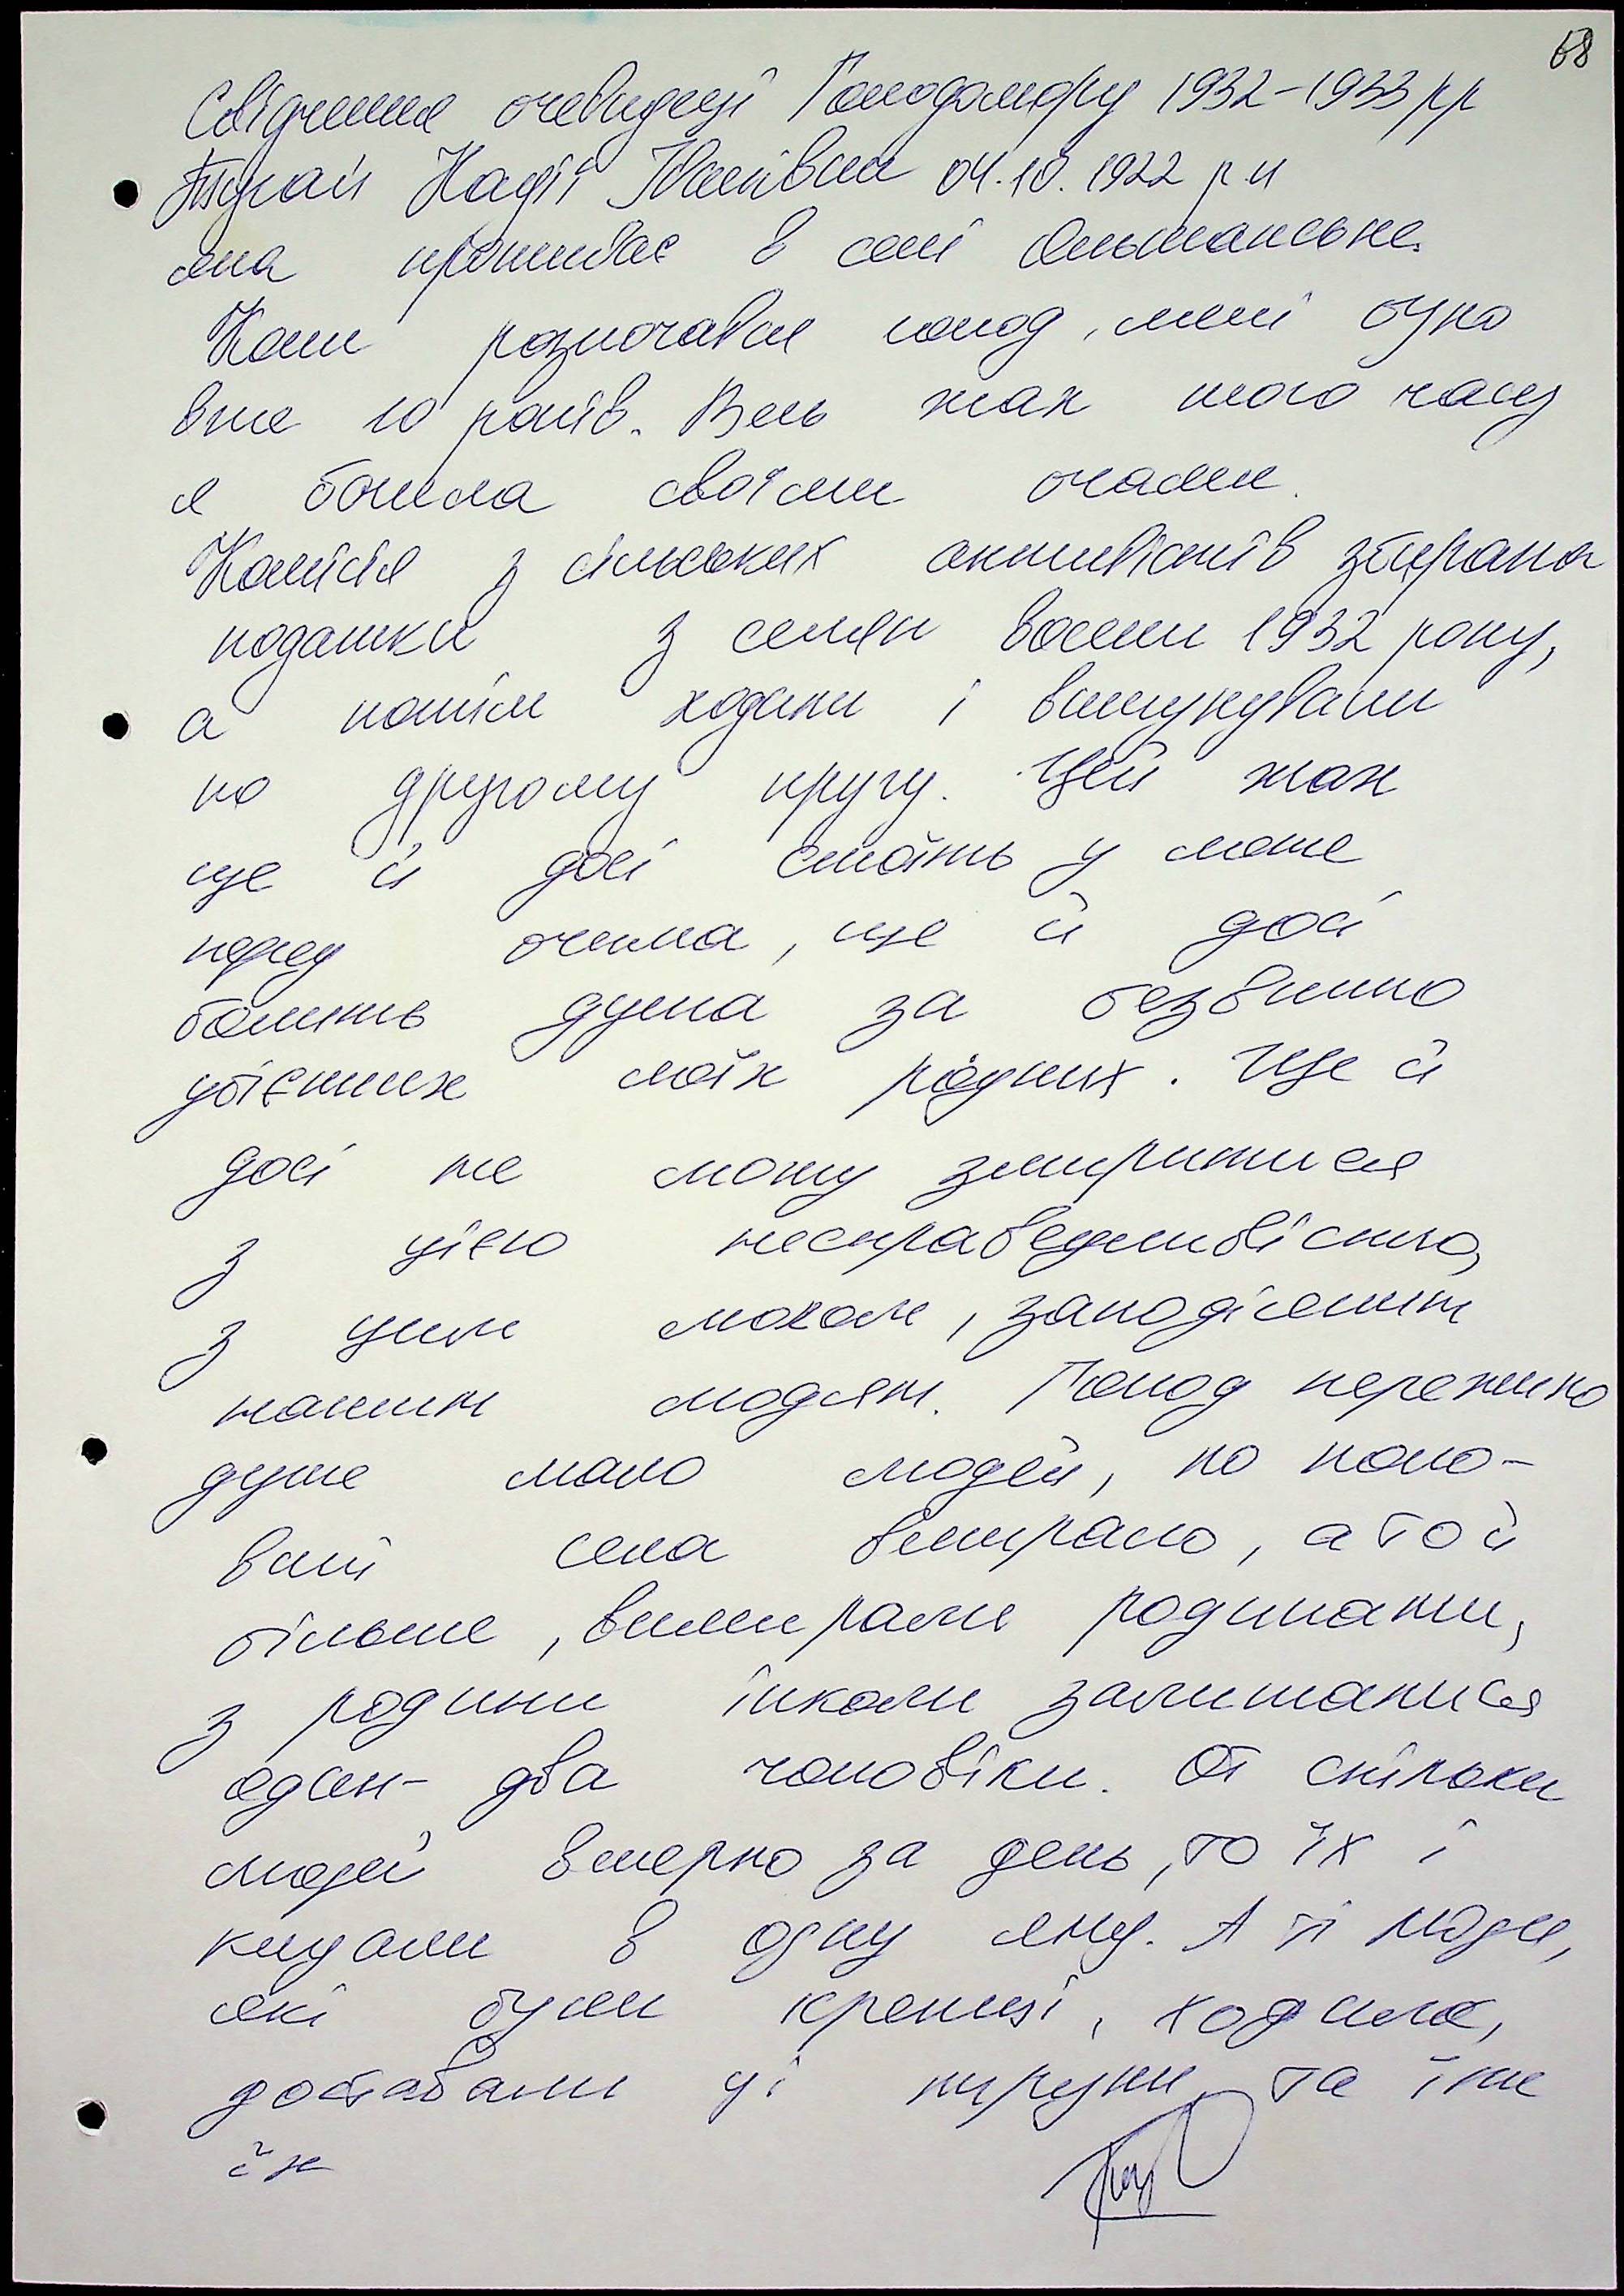 68
Свідчення очевидеці Голодомору 1932-1933 рр
Надії Іванівни 04.10.1922 р.н
яка проживає в селі Ольшанське.
Коли розпочався голод, мені було
вже 10 років. Весь жах того часу
я бачила своїми очами.
Комісія з сільських активістів збирала
податки з селян восени 1932 року,
а потім ходили і вишукували
по другому кругу. Цей жах
ще й досі стоїть у мене
перед очима, ще й досі
болить душа за безвинно
убієнних моїх рідних. Ще й
досі не можу змиритися
з цією несправедливістю,
з цим злом, заподіяним
нашим людям. Голод пережило
дуже мало людей, по поло-
вині села вимирало, а то й
більше, вимирали родинами,
з родини інколи залишалися
один-два чоловіки. От скільки
людей вмерло за день, то їх і
кидали в одну яму. А ті люди,
які були кріпкіші, ходили,
доставали ці трупи та їли
їх